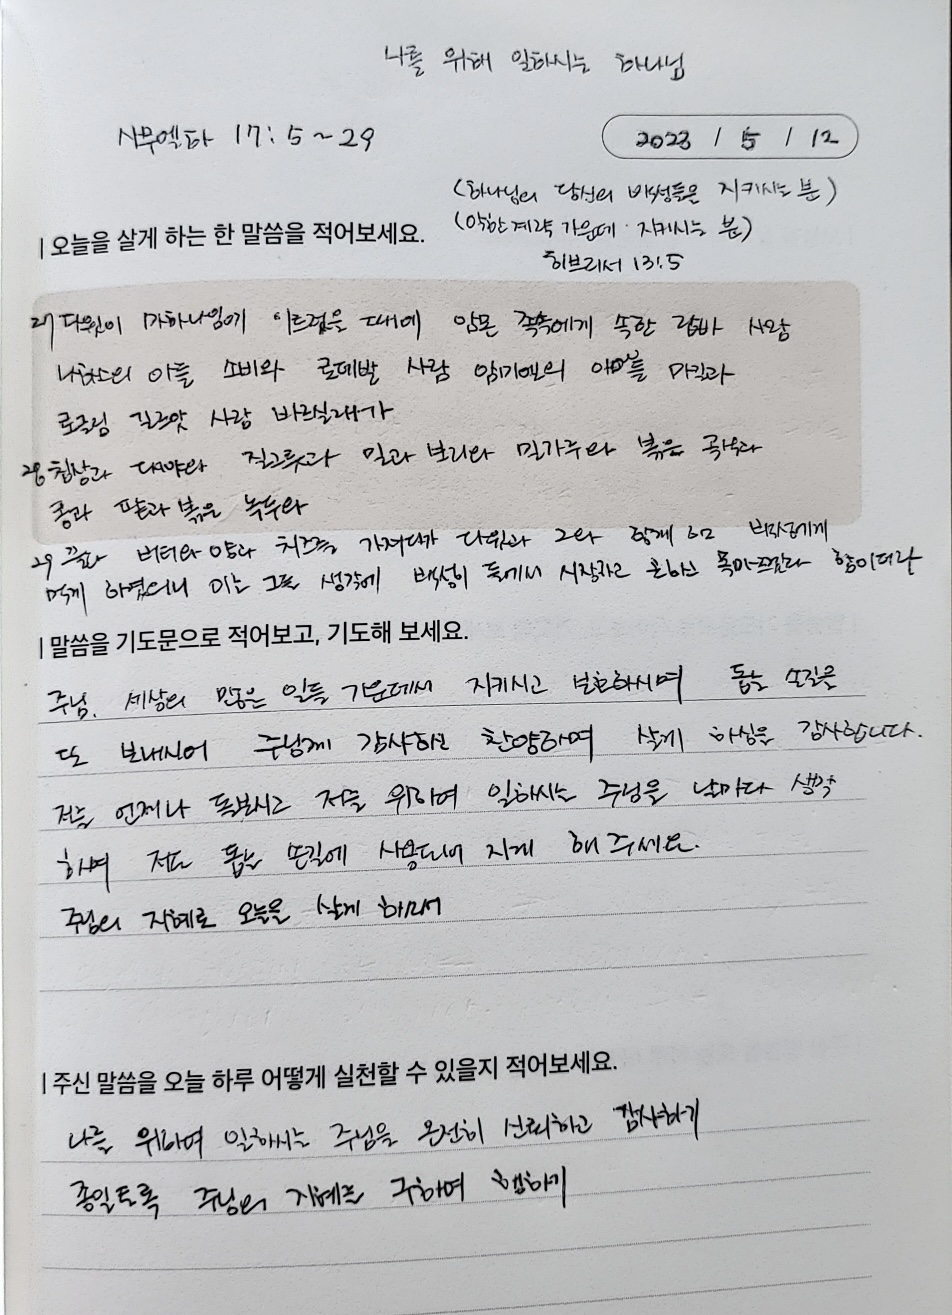 나를 위해 일하시는 하나님
사무엘하 17:5~29
2023 / 5 / 12
(하나님의 당신의 백성들은 지키시는 분)
(악한계략 가운데 지키시는 분)
히브리서 13:5
| 오늘을 살게 하는 한 말씀을 적어보세요.
27 다윗이 마하나임에 이르렀을 때에 암몬 족속에게 속한 랍바 사람
나하스의 아들 소비와 로데발 사람 암미엘의 아들 마길과
로글림 길르앗 사람 바르실래가
28 침상과 대야와 질그릇과 밀과 보리와 밀가루와 볶은 곡식과
콩과 팥과 볶은 녹두와
29 꿀과 버터와 양과 치즈를 가져다가 다윗과 그와 함께 한 백성에게
먹게 하였으니 이는 그들 생각에 백성이 들에서 시장하고 곤하고 목마르겠다 함이더라
| 말씀을 기도문으로 적어보고, 기도해 보세요.
주님, 세상의 많은 일들 가운데서 지키시고 보호하시며 돕는 손길을
또 보내시어 주님께 감사하고 찬양하며 살게 하심을 감사합니다.
저를 언제나 돌보시고 저를 위하여 일하시는 주님을 날마다 생각
하며 저도 돕는 손길에 사용되어 지게 해 주세요.
주님의 지혜로 오늘을 살게 하소서
| 주신 말씀을 오늘 하루 어떻게 실천할 수 있을지 적어보세요.
나를 위하여 일하시는 주님을 온전히 신뢰하고 감사하기
종일토록 주님의 지혜를 구하며 행하기